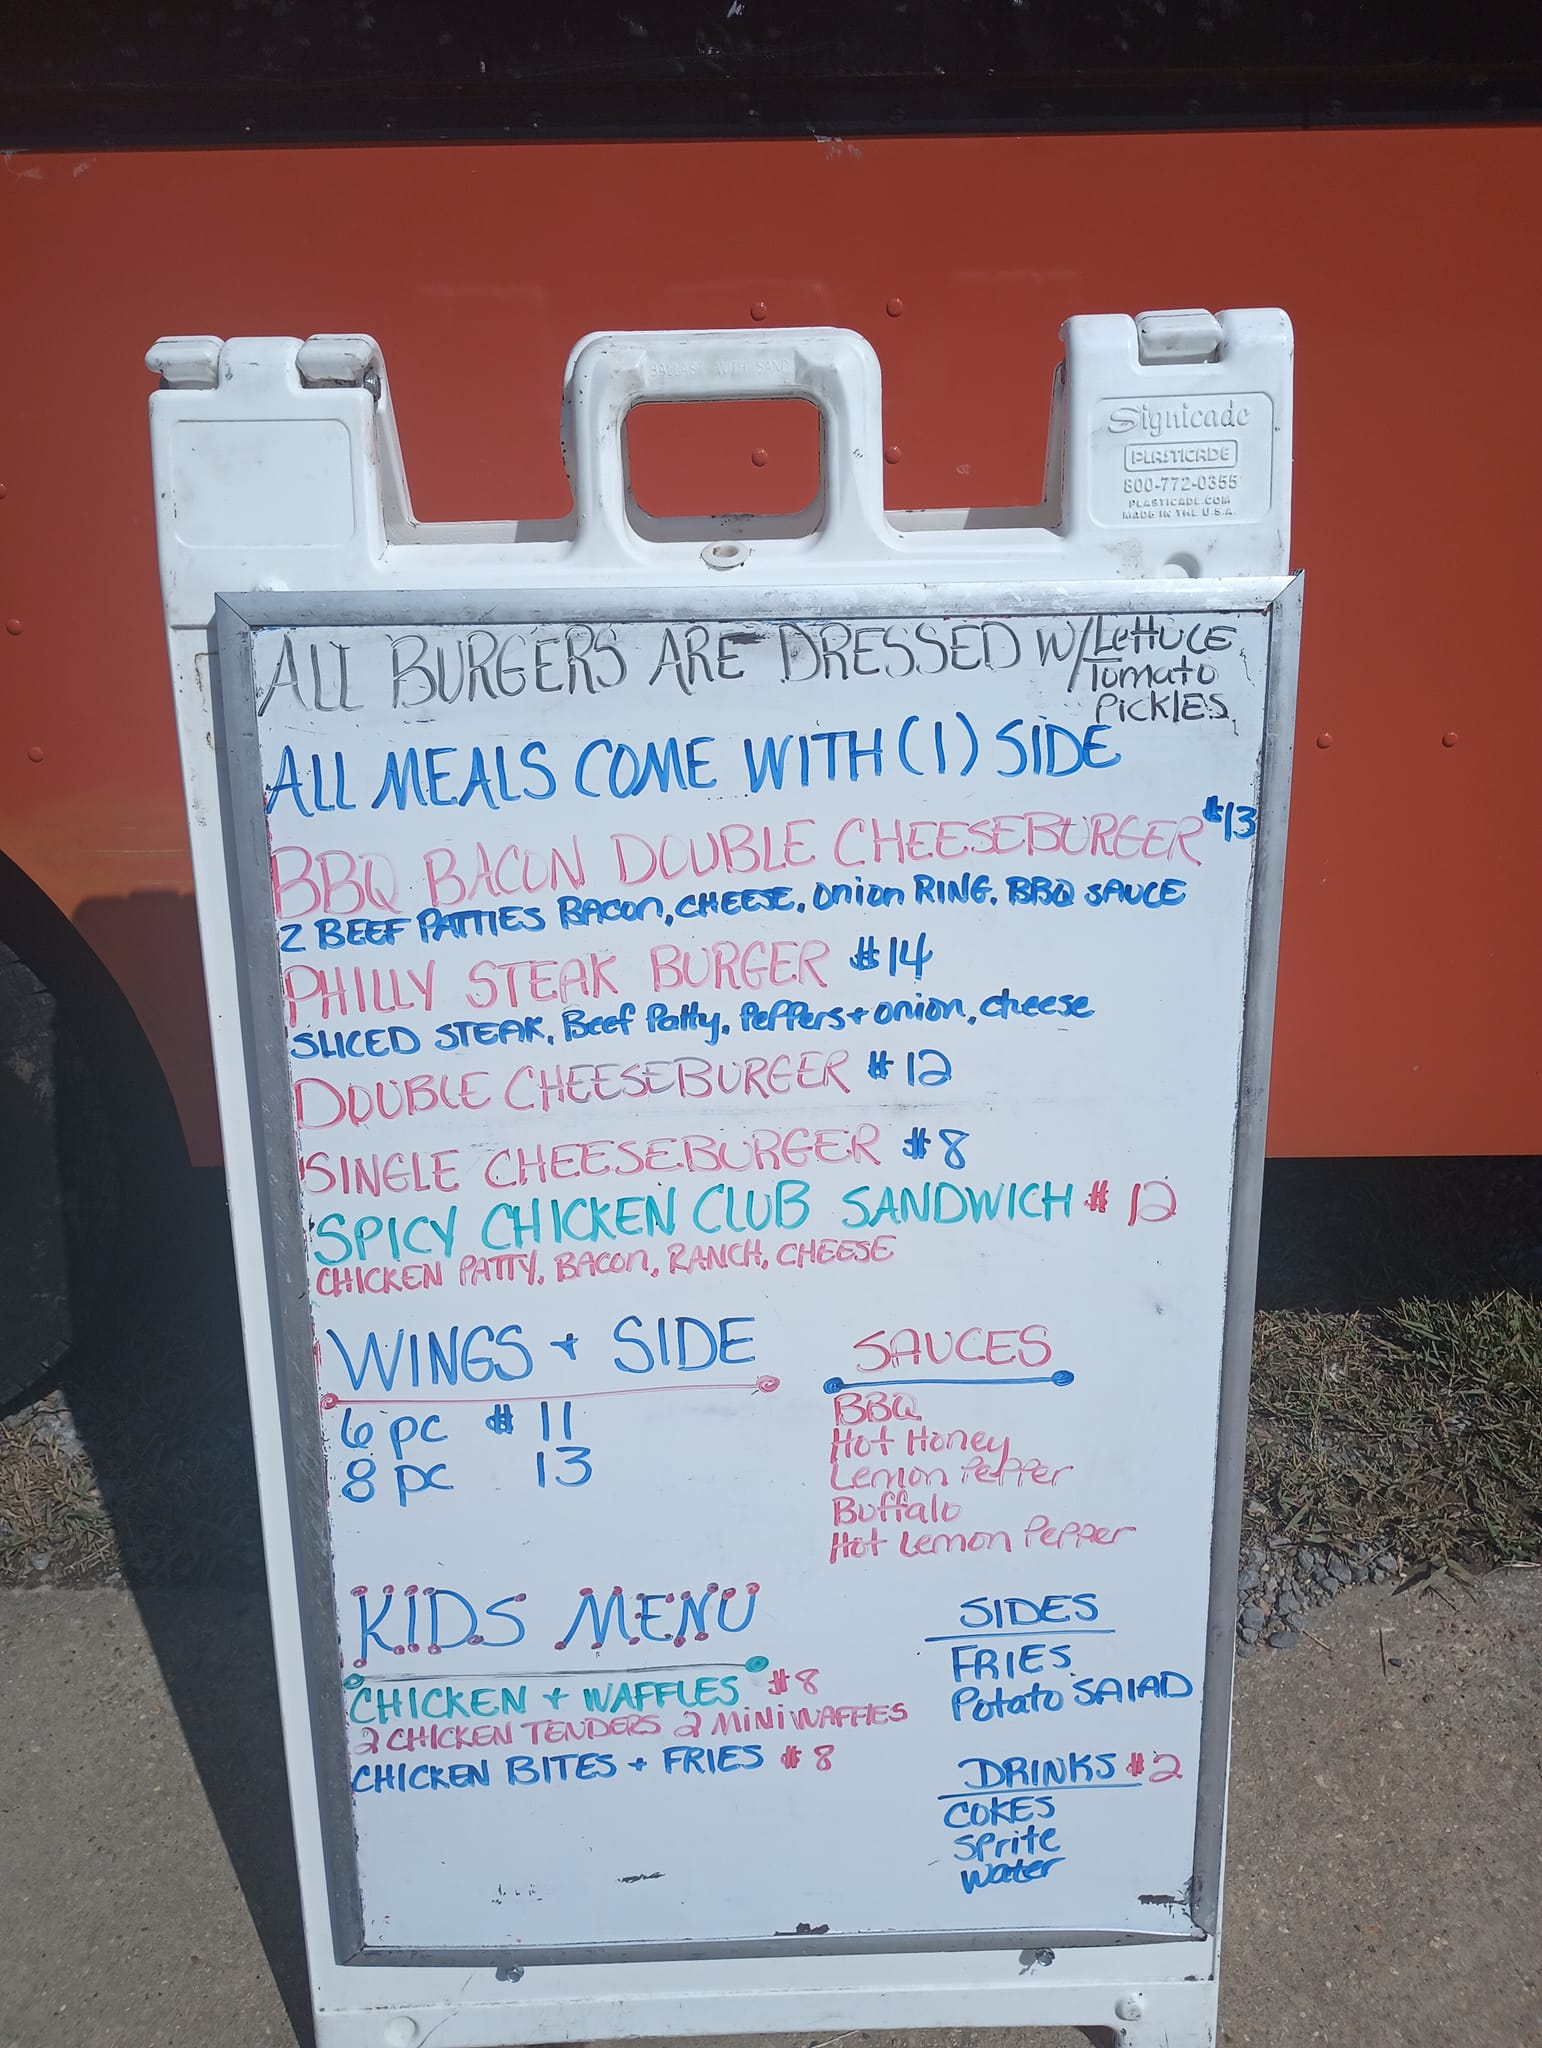 BALLAST WITH SAND
Signicade
PLASTICADE
800-772-0355
PLASTICADE.COM
MADE IN THE U.S.A.
ALL BURGERS ARE DRESSED W/ LETTUCE
Tomato
PICKLES
ALL MEALS COME WITH (1) SIDE
BBQ BACON DOUBLE CHEESEBURGER $13
2 BEEF PATTIES BACON, CHEESE, ONION RING, BBQ SAUCE
PHILLY STEAK BURGER $14
SLICED STEAK, Beef Patty, Peppers + onion, cheese
DOUBLE CHEESEBURGER $12
SINGLE CHEESEBURGER $8
SPICY CHICKEN CLUB SANDWICH $12
CHICKEN PATTY, BACON, RANCH, CHEESE
WINGS + SIDE
6 pc $ 11
8 pc 13
SAUCES
BBQ
Hot Honey
Lemon Pepper
Buffalo
Hot Lemon Pepper
KIDS MENU
CHICKEN + WAFFLES $8
2 CHICKEN TENDERS 2 MINI WAFFLES
CHICKEN BITES + FRIES $8
SIDES
FRIES
Potato SALAD
DRINKS $2
COKES
Sprite
Water